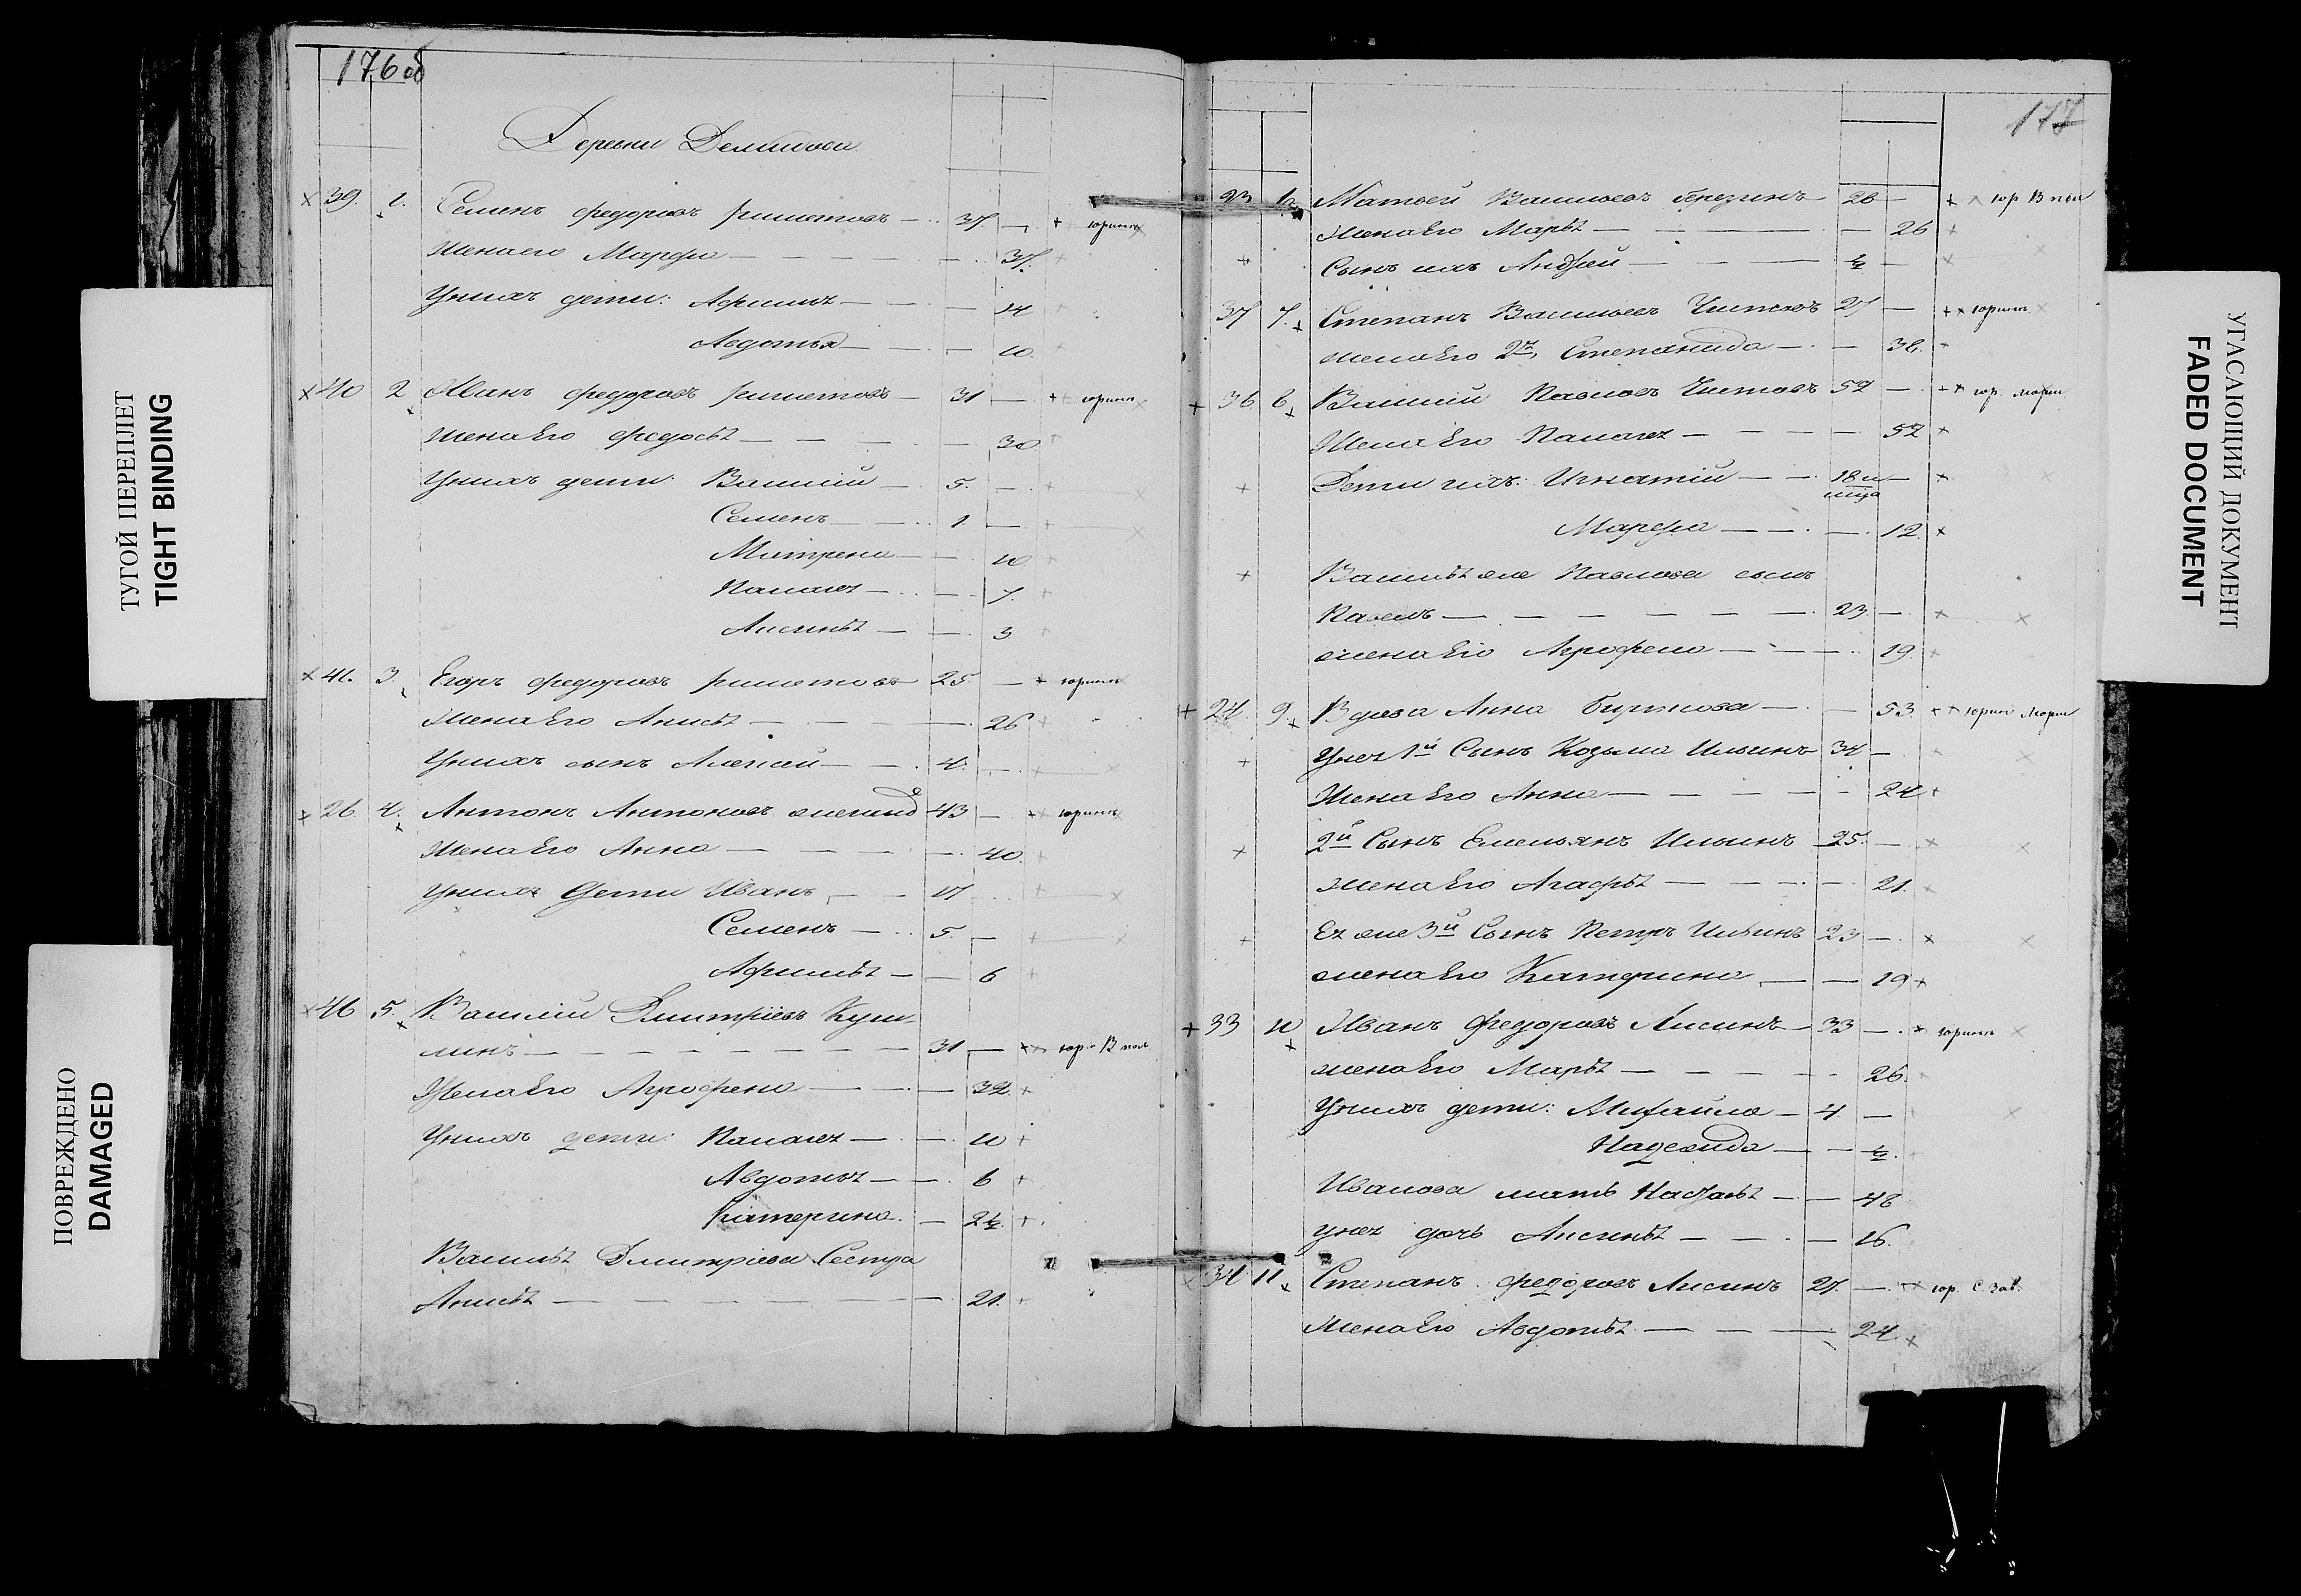 176 об
Деревни Демидови
39. 1. Семенъ Федоровъ Рышетовъ 37. юринъ
Жена его Марфа 37.
У нихъ дети: Афимья 14
Авдотья 10.
40 2 Иванъ Федоровъ Рышетовъ 31 юринъ
Жена Его Федосья 30
У нихъ дети: Василий 5.
Семенъ 1.
Матрена 10
Палагея 7.
Аксинья 3
41. 3. Егоръ Федоровъ Рышетовъ 25 юринъ
Жена Его Анисья 26
У нихъ сынъ Алексей 4.
26. 4. Антонъ Антоновъ 43 юринъ
Жена Его Анна 40.
У нихъ Дети Иванъ 17
Семенъ 5.
Афимья 6
46 5. Василий Дмитріевъ Куш-
линъ 31 юр. В пол.
Жена Его Агрофена 32.
У нихъ дети: Палагея 10
Авдотья 6
Катерина. 2½.
Василья Дмитріева Сестра
Анисья 21.
177
23 Матвей Васильевъ Брезинъ 28 юр В пол
Жена Его Марья 26
Сынъ ихъ Андрей ½
37 7. Степанъ Васильевъ Чистовъ 27 юринъ.
жена Его 2я, Степанида
36. 6. Василий Павловъ Чистовъ 52 юр.
Жена Его Палагея 52
Дети ихъ: Игнатий 18 и
Марфа 12.
Василья же Павлова сынъ
Павелъ 23.
жена Его Агрофена 19.
24. 9. Вдова Анна 53. юрин
У нея 1й Сынъ Козьма Ильинъ 34
Жена Его Анна 24
2й Сынъ Емельянъ Ильинъ 25.
жена Его Агафья 21.
Ея же 3й Сынъ Петръ Ильинъ 23
жена Его Катерина 19
33 10 Иванъ Федоровъ Лисинъ 33 юринъ
жена Его Марья 26.
У нихъ дети: Михайла 4
Надежида ½.
Иванова мать Настасья 48
у нея дочь Аксинья 16.
34 11 Степанъ Федоровъ Лисинъ 27. юр. С зав.
Жена Его Авдотья 24.
ТУГОЙ ПЕРЕПЛЕТ
TIGHT BINDING
ПОВРЕЖДЕНО
DAMAGED
УГАСАЮЩИЙ ДОКУМЕНТ
FADED DOCUMENT